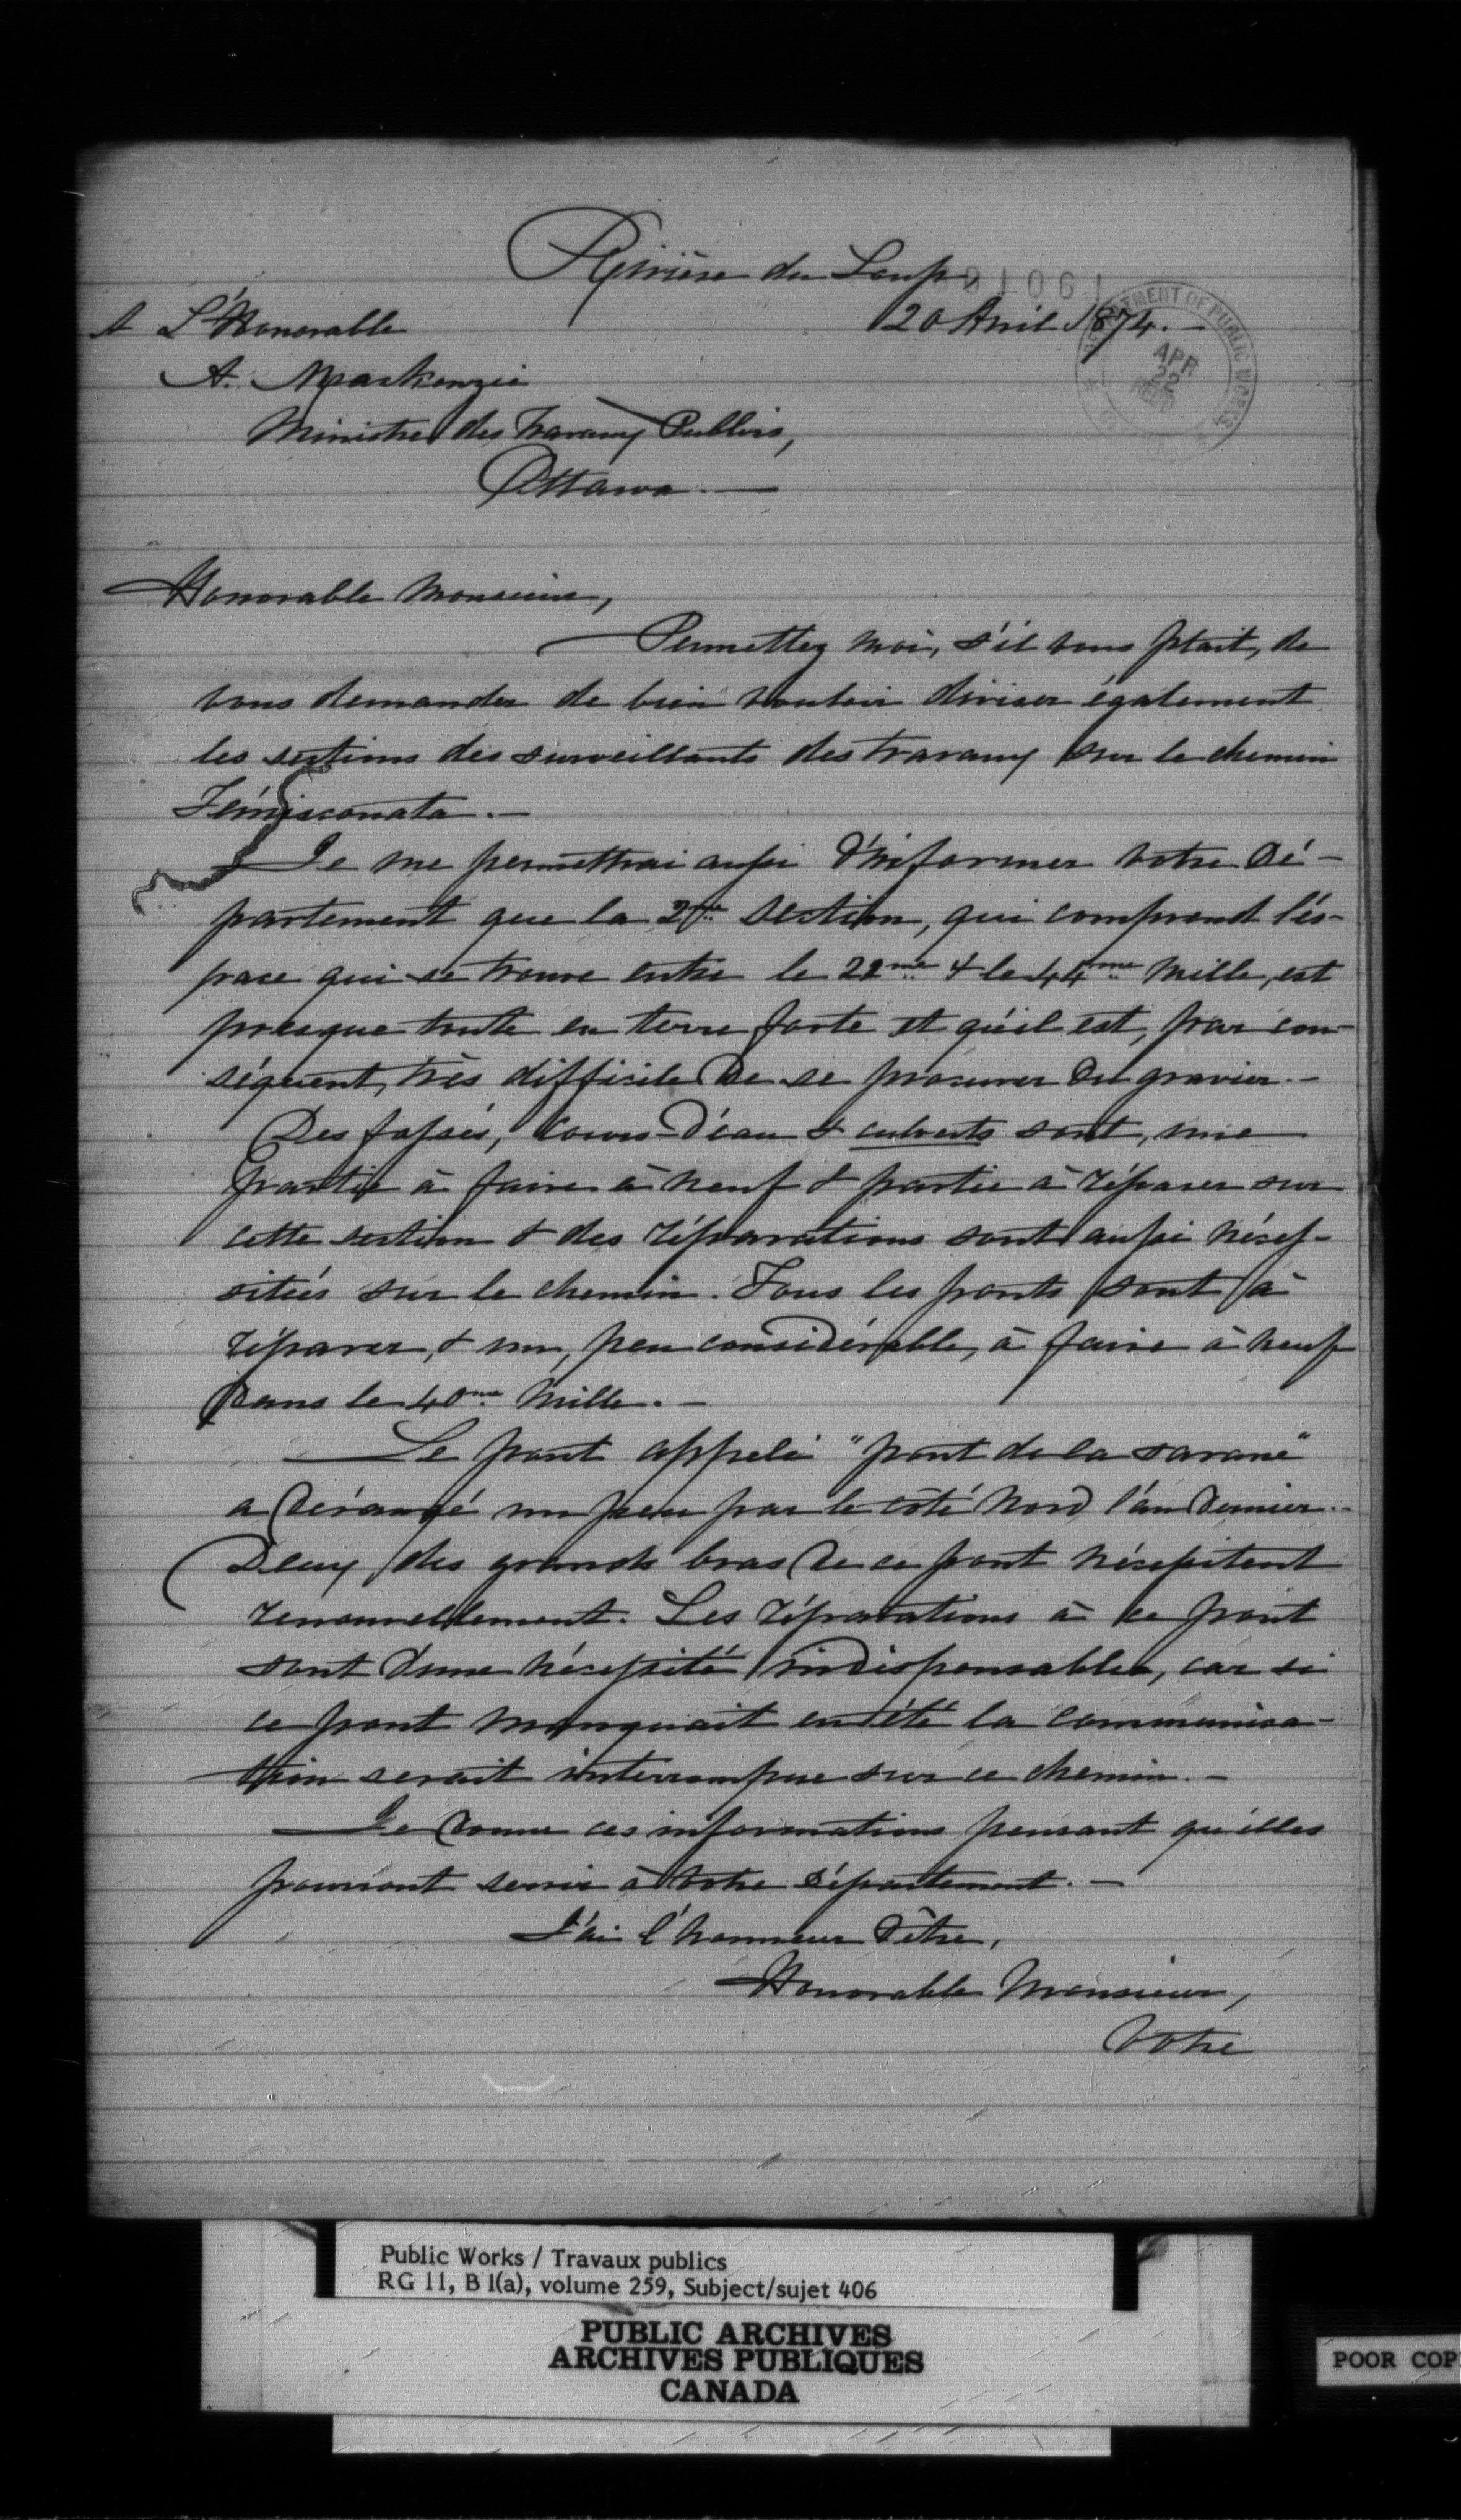 Rivière du Loup,
01061
20 Avril 1874.-
DEPARTMENT OF PUBLIC WORKS
APR
22
REC'D
A L'Honorable
A. Mackenzie
Ministre des Travaux Publics,
Ottawa.—
Honorable Monsieur,
Permettez moi, s'il vous plait, de
vous demander de bien vouloir diviser également
les sections des surveillants des travaux sur le chemin
Témiscouata.—
Je me permettrai aussi d'informer votre Dé-
partement que la 2me section, qui comprend l'és-
pace qui se trouve entre le 22me & le 44me mille, est
presque toute en terre forte et qu'il est, par con-
séquent, très difficile de se procurer du gravier.—
Des fossés, cours-d'eau & culverts sont, une
partie à faire à neuf & partie à réparer sur
cette section & des réparations sont aussi néces-
sitées sur le chemin. Tous les ponts sont à
réparer, & un, peu considérable, à faire à neuf
dans le 40me mille.—
Le pont appelé "pont de la savane"
a dérangé un peu par le côté nord l'an dernier.-
Deux des grands bras de ce pont nécessitent
renouvellement. Les réparations à ce pont
sont d'une nécessité indispensable, car si
ce pont manquait en été la communica-
tion serait interrompue sur ce chemin.—
Je donne ces informations pensant qu'elles
pourront servir à votre département.—
J'ai l'honneur d'être,
Honorable Monsieur,
Votre
Public Works / Travaux publics
RG 11, B 1(a), volume 259, Subject/sujet 406
PUBLIC ARCHIVES
ARCHIVES PUBLIQUES
CANADA
POOR COP